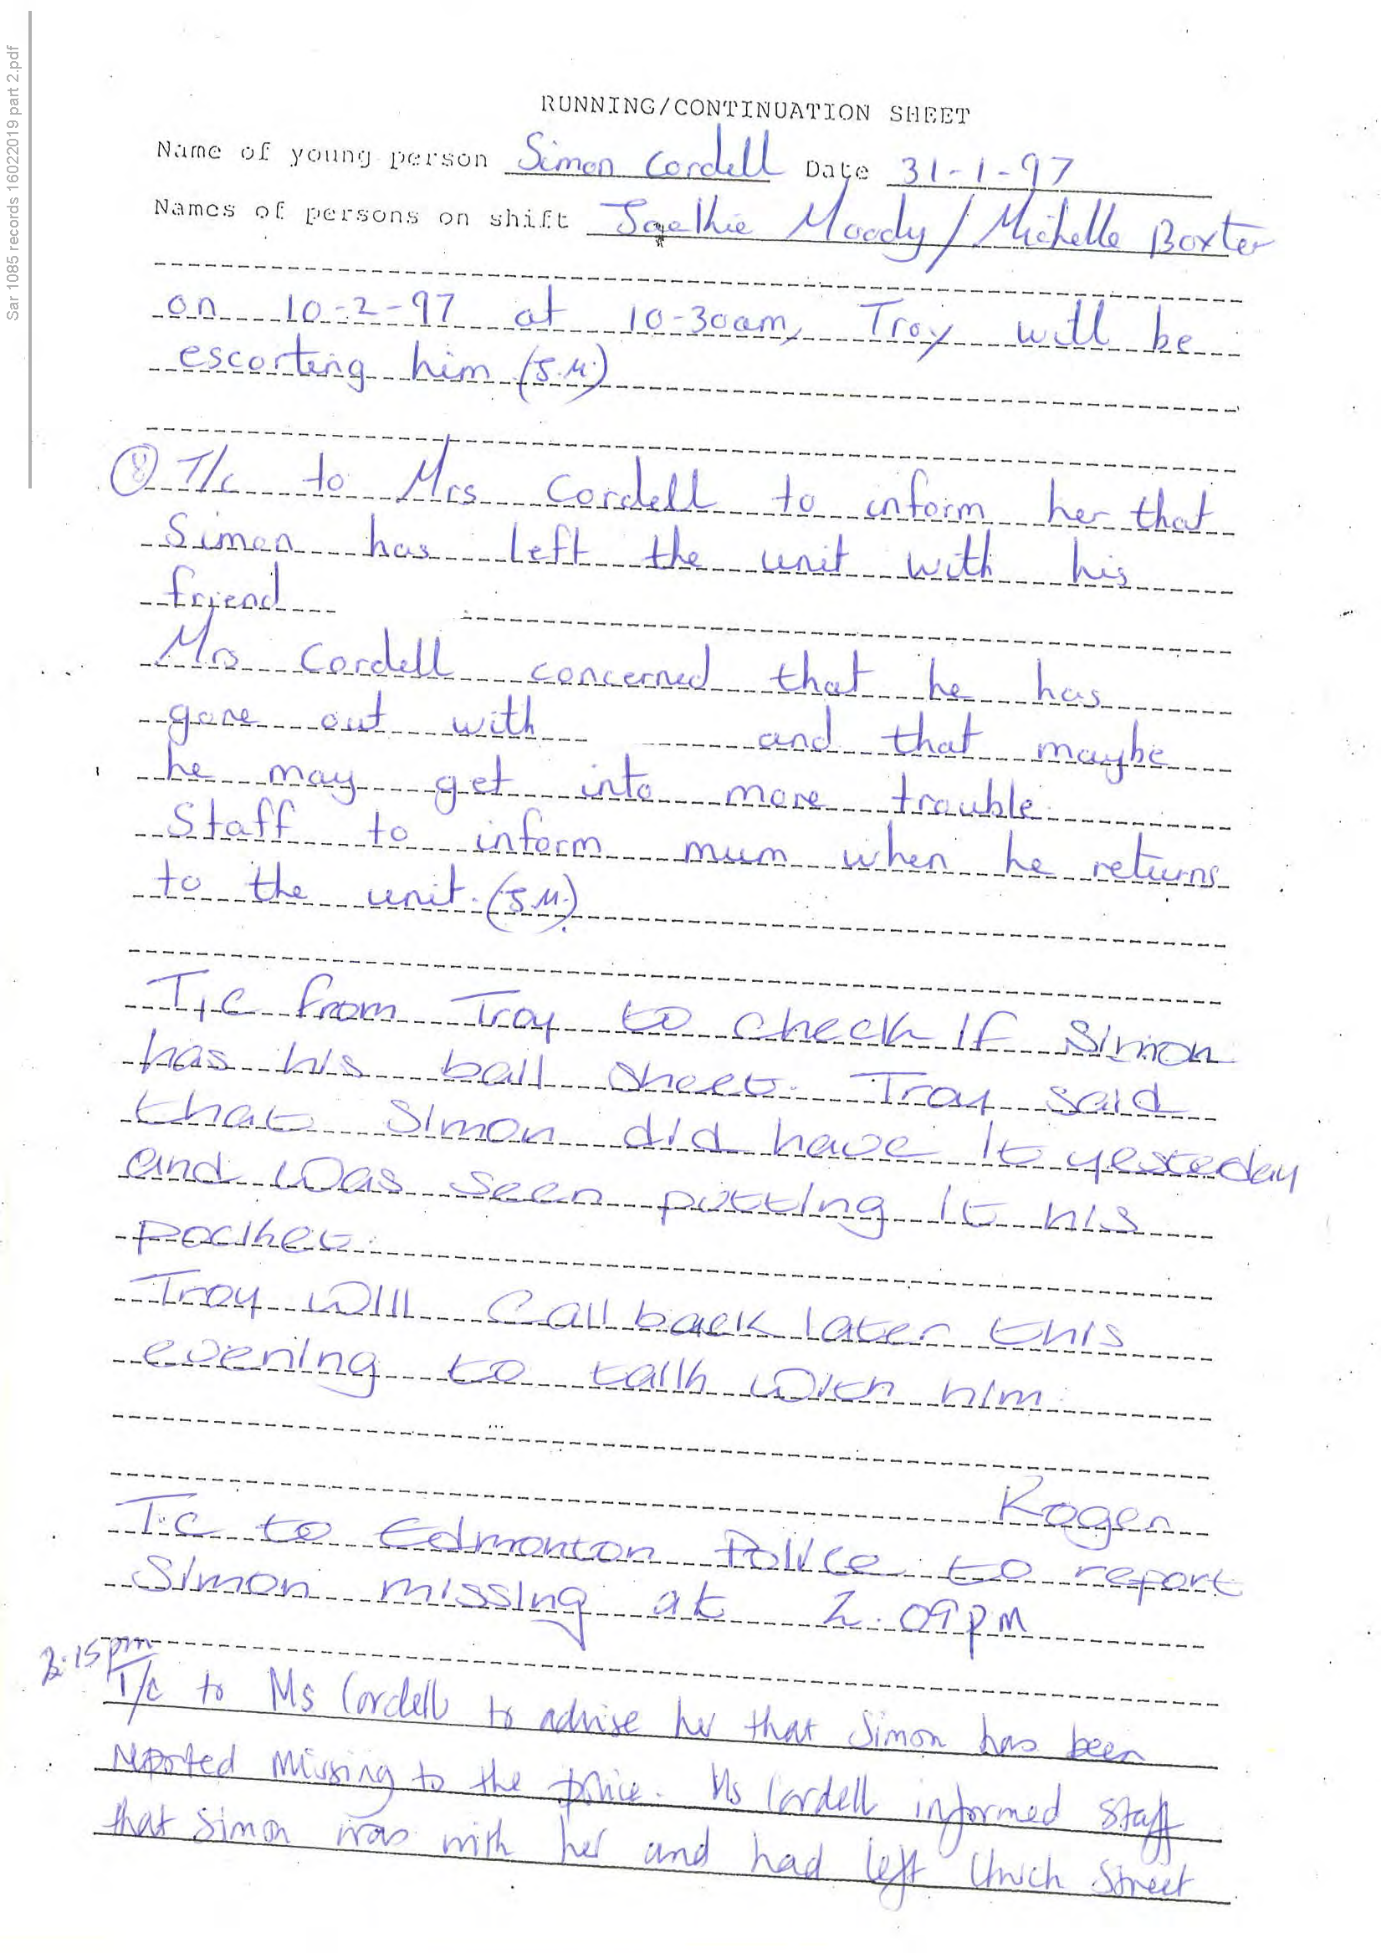 Sar 1085 records 16022019 part 2.pdf
RUNNING/CONTINUATION SHEET
Name of young person Simon Cordell Date 31-1-97
Names of persons on shift Moody / Michelle Boxter
on 10-2-97 at 10-30am, Troy will be
escorting him (J.M.)
⑧ T/c to Mrs Cordell to inform her that
Simon has left the unit with his
friend
Mrs Cordell concerned that he has
gone out with and that maybe
he may get into more trouble.
Staff to inform mum when he returns
to the unit. (J.M.)
T,c from Troy to check if Simon
has his bail sheet. Troy said
that Simon did have it yesteday
and was seen putting it his
pocket.
Troy will call back later this
evening to talk with him.
Roger
T.c to Edmonton Police to report
Simon missing at 2.09pm
2.15pm
T/c to Ms Cordell to advise her that Simon has been
reported missing to the police. Ms Cordell informed staff
that Simon was with her and had left Church Street